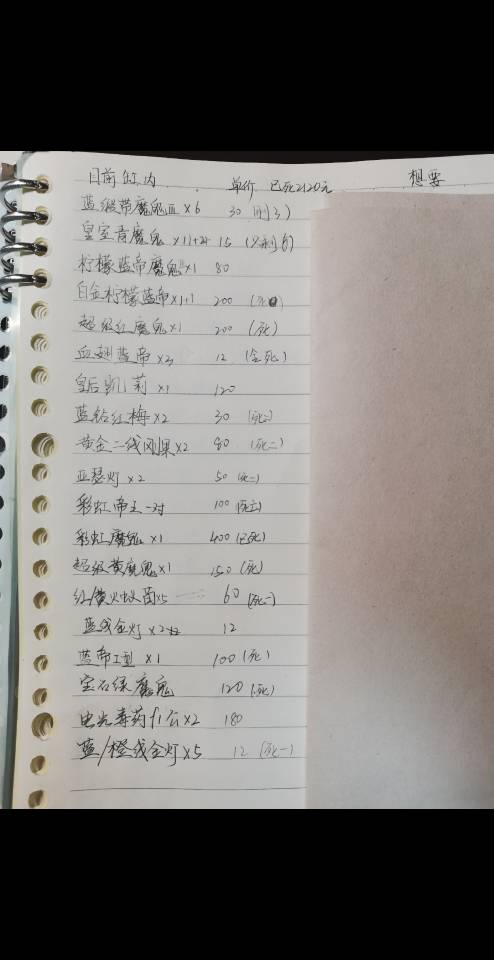 目前缸内 单价 已死2120元 想要
蓝缎带魔鬼 ×6 30 (剩3)
皇室青魔鬼 ×11+2 15 (只剩6)
柠檬蓝帝魔鬼×1 80
白金柠檬蓝帝×1+1 200
超级红魔鬼×1 200 (死)
血翅蓝帝×3 12 (全死)
皇后凯莉×1 120
蓝钻红梅×2 30
黄金二线刚果×2 80 (死二)
亚瑟灯×2 50 (死一)
彩虹帝王一对 100
彩虹魔鬼×1 400 (已死)
超级黄魔鬼×1 150 (死)
红/黄火蚁茵×5 60 (死一)
蓝线金灯×2 12
蓝帝I型×1 100 (死)
宝石绿魔鬼 120 (死)
电光毒药f1公×2 180
蓝/橙线金灯×5 12 (死一)